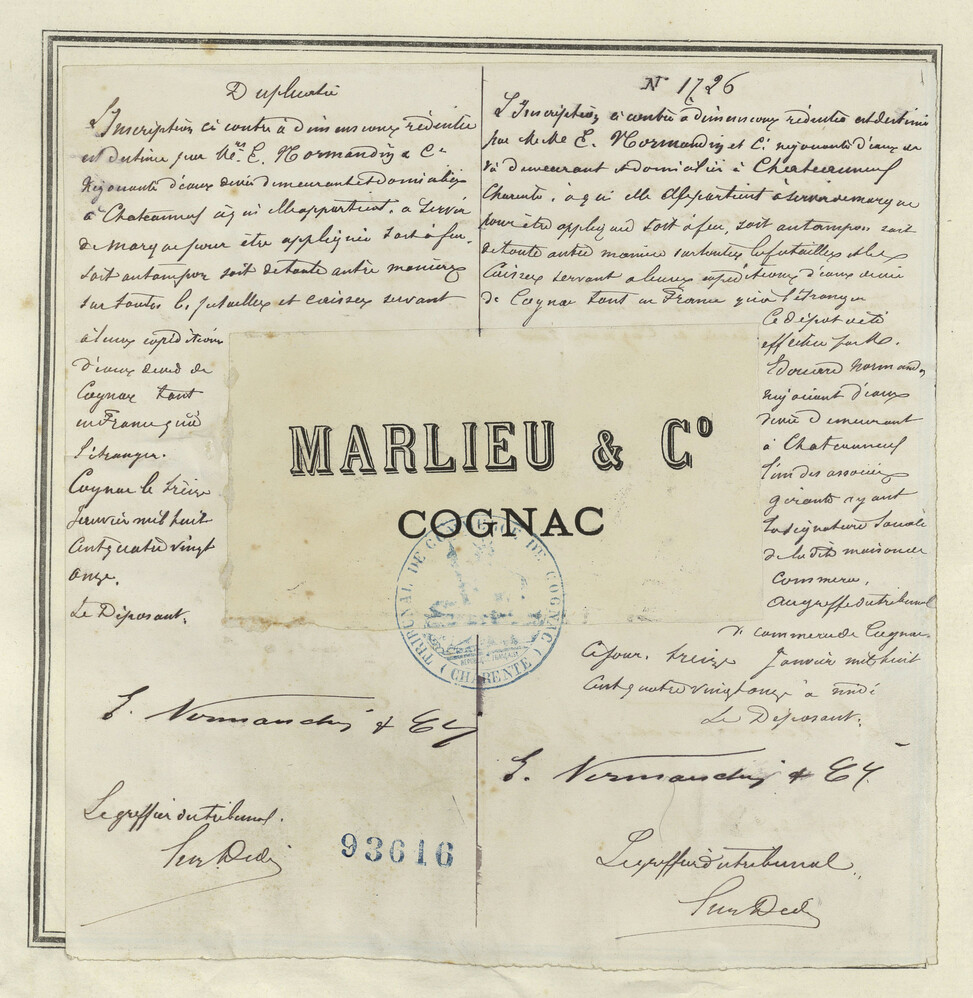 Duplicata
L'Inscription ci contre à dimensions réduites
est destinée par MMrs E. Normandin & Cie
négociants d'eaux de vie demeurant et domiciliés
à Chateauneuf à qui elle appartient, à servir
de marque pour être appliquée soit à feu,
soit au tampon soit de toute autre manière
sur toutes les futailles et caisses servant
à leurs expéditions
d'eaux de vie de
Cognac tant
en France qu'à
l'étranger.
Cognac le treize
Janvier mil huit
cent quatre vingt
onze.
Le Déposant.
E. Normandin & Cy
Le greffier du tribunal.
93616
No 1726
L'Inscription ci contre à dimensions réduites est destinée
par MMrs E. Normandin et Cie négociants d'eaux de
vie demeurant et domiciliés à Chateauneuf
Charente, à qui elle appartient à servir de marque
pour être appliquée soit à feu, soit au tampon soit
de toute autre manière sur toutes les futailles et les
Caisses servant à leurs expéditions d'eaux de vie
de Cognac tant en France qu'à l'étranger
Ce dépôt a été
effectué par M.
Edouard Normandin
négociant d'eaux
de vie demeurant
à Chateauneuf
l'un des associés
gérants ayant
la signature sociale
de la dite maison de
commerce,
au greffe du tribunal
de commerce de Cognac
Ce jour, treize Janvier mil huit
cent quatre vingt onze à midi
Le Déposant.
E. Normandin & Cy
Le greffier du tribunal
MARLIEU & Co
COGNAC
TRIBUNAL DE COMMERCE DE COGNAC
(CHARENTE)